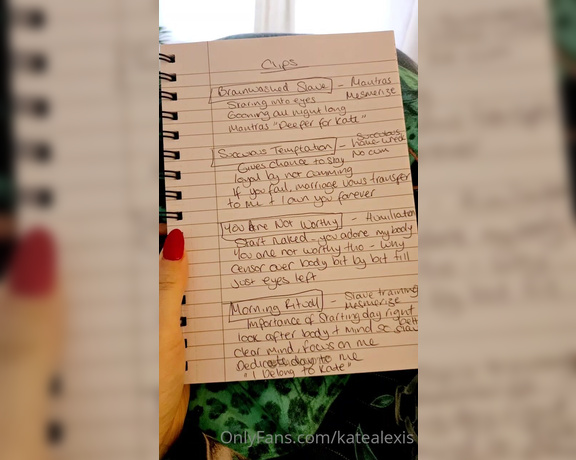 Clips
Brainwashed Slave - Mantras
Mesmerize
Staring into eyes
Gooning all night long
Mantras "Deeper for Kate"
Succubus Temptation - Succubus
Home-wrecker
No cum
Gives chance to stay
loyal by not cumming
If you fail, marriage vows transfer
to me + I own you forever
You Are Not Worthy - Humiliation
Start naked - you adore my body
You are not worthy tho - why
Censor over body bit by bit till
just eyes left
Morning Ritual - Slave training
Mesmerize
Importance of starting day right
look after body + mind so
clear mind, focus on me
Dedicate day to me
"I Belong to Kate"
OnlyFans.com/katealexis